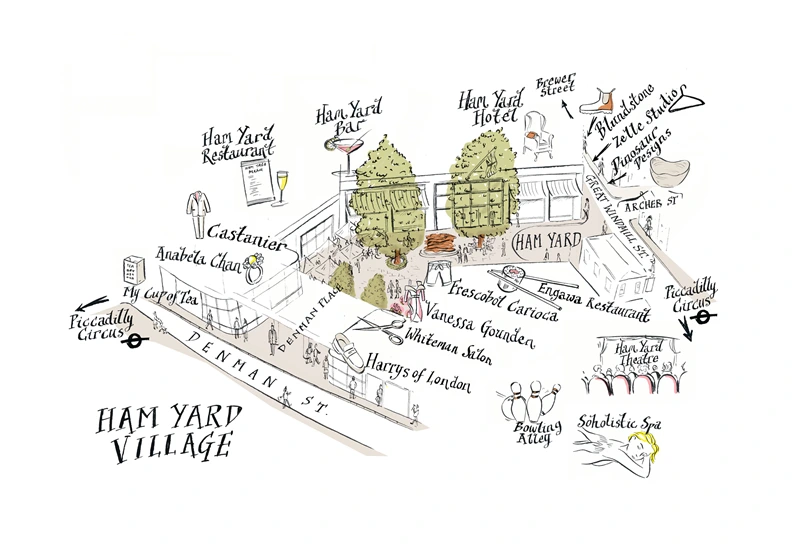 Brewer
Street
Ham Yard
Hotel
Ham Yard
Bar
Ham Yard
Restaurant
Blundstone
Zelle Studio
Dinosaur
Designs
GREAT WINDMILL ST.
ARCHER ST
HAM YARD
Castanier
Anabela Chan
My Cup of Tea
Piccadilly
Circus
DENMAN PLACE
DENMAN ST.
Frescobol Carioca
Engawa Restaurant
Vanessa Gounden
Whiteman Salon
Harrys of London
Piccadilly
Circus
Ham Yard
Theatre
Bowling
Alley
Soholistic Spa
HAM YARD
VILLAGE